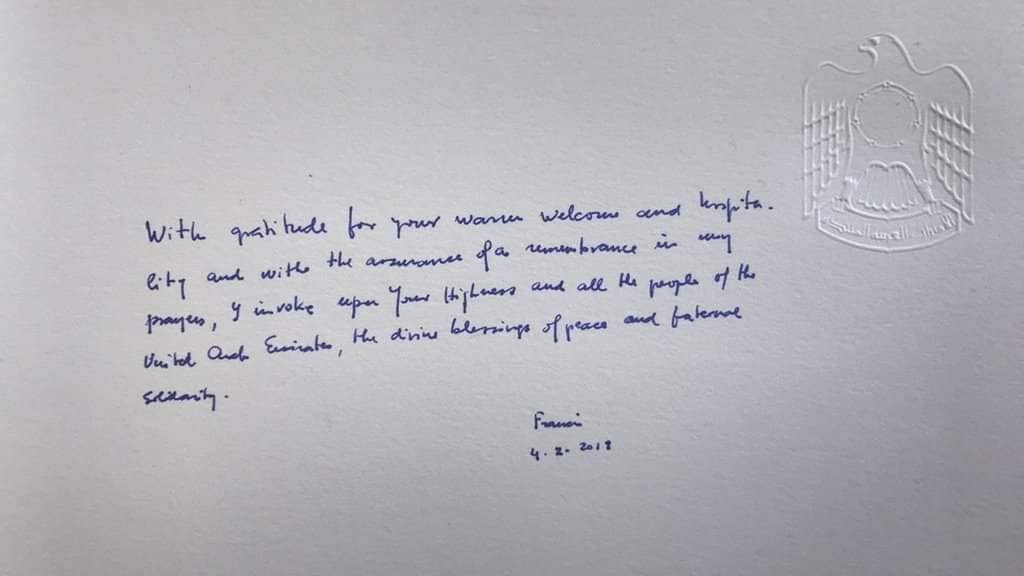 With gratitude for your warm welcome and hospita-
lity and with the assurance of a remembrance in my
prayers, I invoke upon Your Highness and all the people of the
United Arab Emirates, the divine blessings of peace and fraternal
solidarity.
Francis
4.2.2019
الإمارات العربية المتحدة